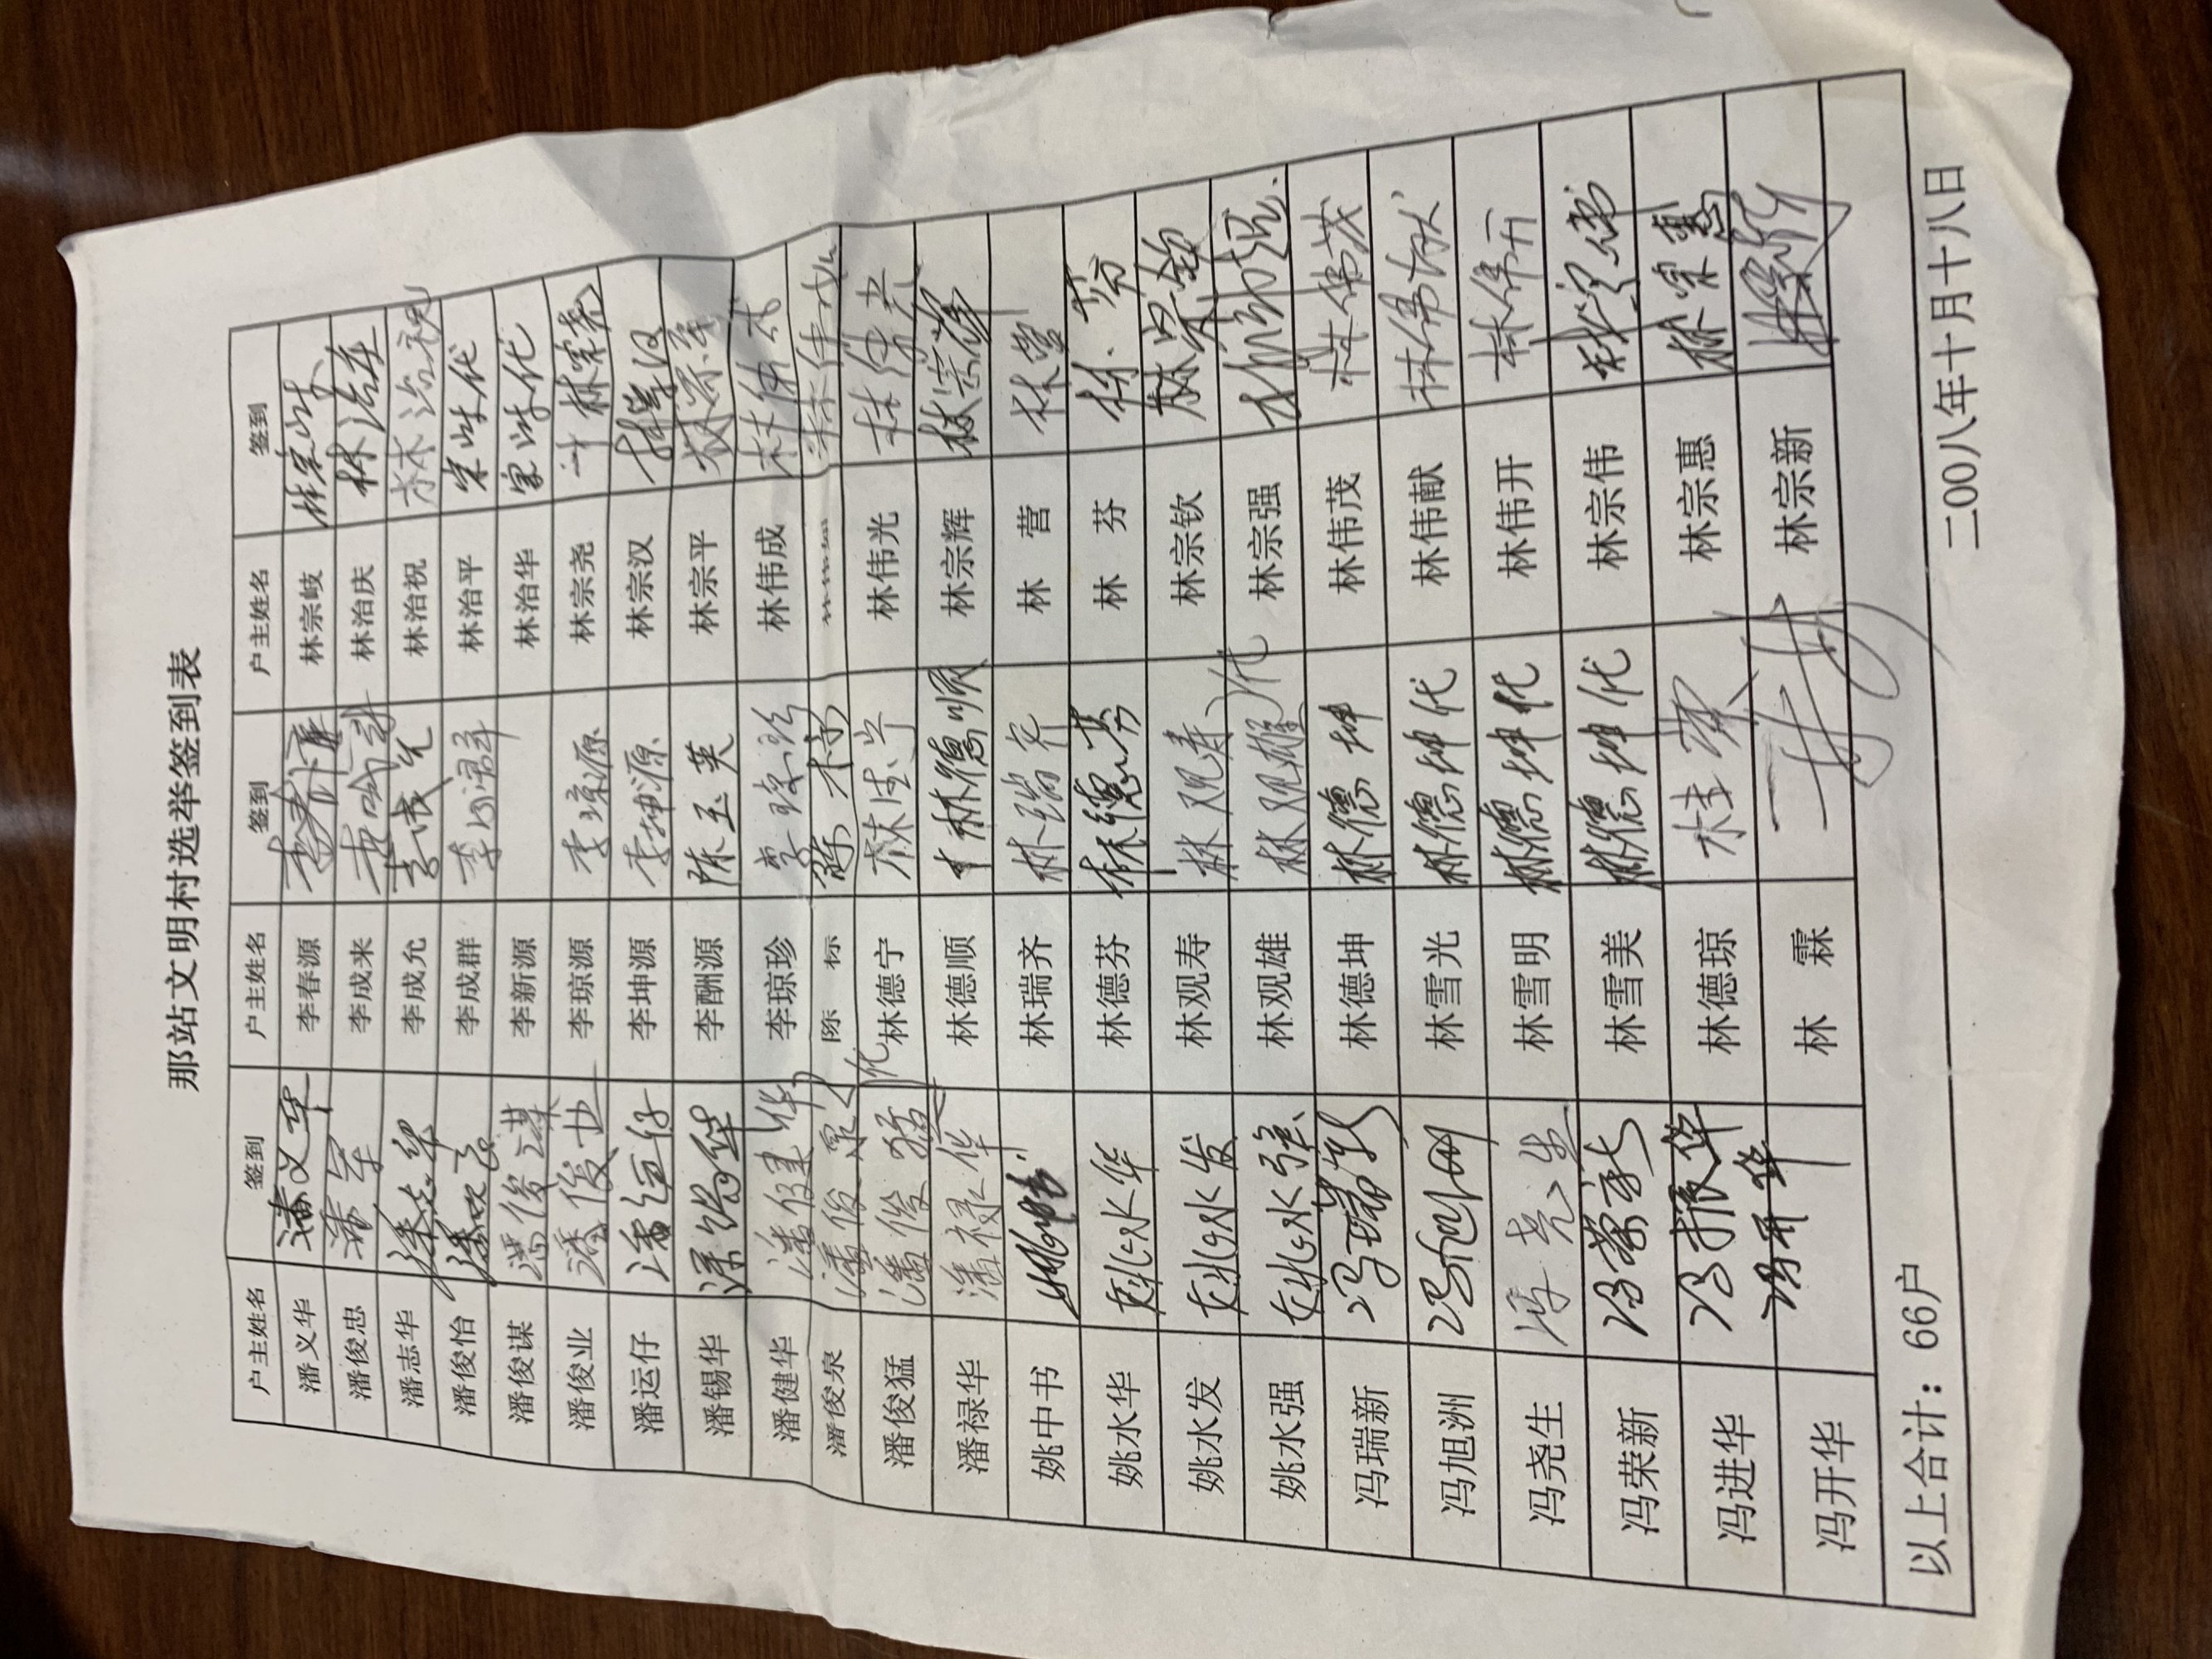 那站文明村选举签到表
户主姓名 签到 户主姓名 签到 户主姓名 签到
潘义华 潘义华 李春源 林宗岐
潘俊忠 潘军 李成来 林治庆
潘志华 潘志华 李成允 李成允 林治祝 林治祝
潘俊怡 李成群 李成群 林治平 宗岐代
潘俊谋 潘俊谋 李新源 林治华 宗岐代
潘俊业 潘俊业 李琼源 李琼源 林宗尧 林宗尧
潘运仔 潘运仔 李坤源 李坤源 林宗汉 林宗汉
潘锡华 潘锡华 李酬源 陈玉英 林宗平
潘健华 潘健华 李琼珍 李琼珍 林伟成
潘俊泉 潘俊泉 陈 标 陈标
潘俊猛 潘俊猛 代 林德宁 林德宁 林伟光 林伟光
潘禄华 潘禄华 林德顺 林德顺 林宗辉 林宗辉
姚中书 林瑞齐 林瑞齐 林 营 林营
姚水华 姚水华 林德芬 林德芬 林 芬 林芬
姚水发 姚水发 林观寿 林观寿 林宗钦 林宗钦
姚水强 姚水强 林观雄 林观雄 代 林宗强
冯瑞新 冯瑞新 林德坤 林德坤 林伟茂 林伟茂
冯旭洲 冯旭洲 林雪光 林德坤代 林伟献 林伟献
冯尧生 冯尧生 林雪明 林德坤代 林伟开 林伟开
冯荣新 冯荣新 林雪美 林德坤代 林宗伟 林宗伟
冯进华 冯振华 林德琼 林宗惠 林宗惠
冯开华 冯开华 林 霖 林宗新
以上合计：66户
二00八年十月十八日